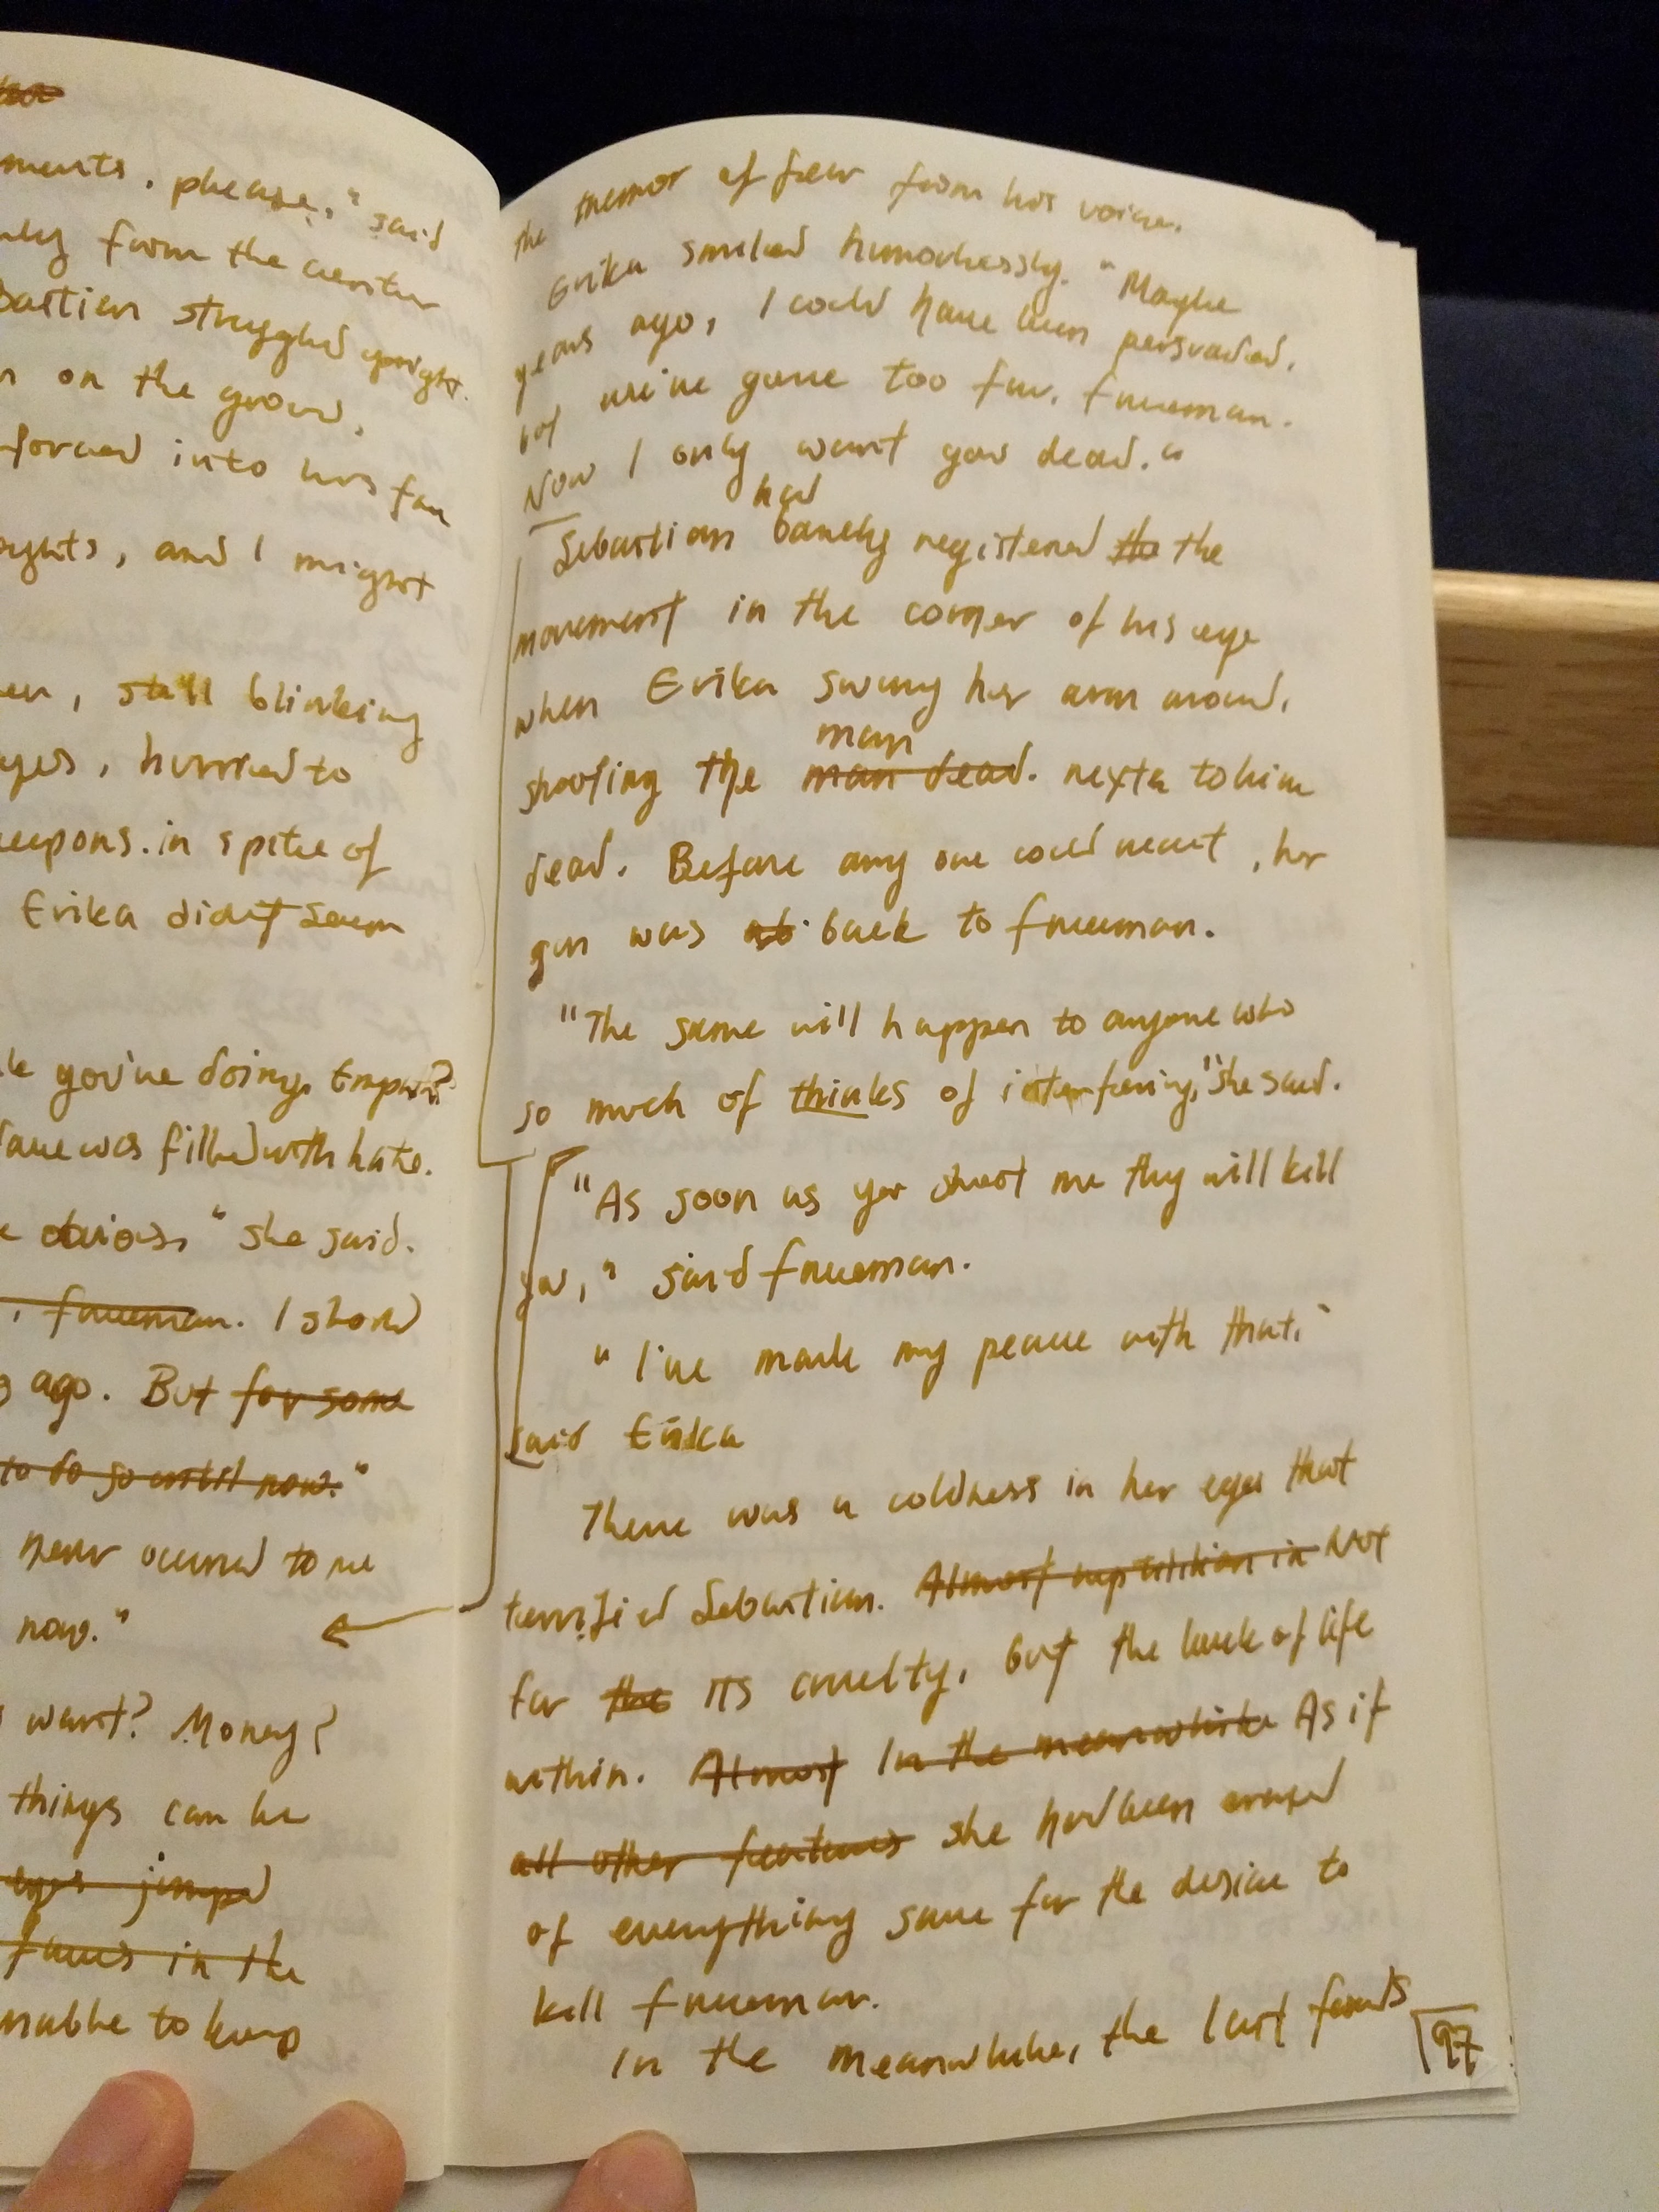 ments, please," said
from the center
bastian struggled upright.
on the ground.
forced into his fan
oughts, and I might
en, still blinking
eyes, hurried to
eapons. in spite of
Erika didn't seem
you're doing, Empath?
face was filled with hate.
obvious," she said.
, freeman. I should
ago. But for some
to do so until now."
never occured to me
now."
want? Money?
things can be
eyes jumped
faces in the
unable to keep
the tremor of fear from his voice.
Erika smiled humorlessly. "Maybe
years ago, I could have been persuaded,
but we've gone too far, freeman.
Now I only want you dead."
had
Sebastian barely registered the the
movement in the corner of his eye
when Erika swung her arm around,
man
shooting the man dead. next to him
dead. Before any one could react, her
gun was back to freeman.
"The same will happen to anyone who
so much of thinks of interfering," she said.
"As soon as you shoot me they will kill
you," said freeman.
"I've made my peace with that,"
said Erika
There was a coldness in her eyes that
terrified Sebastian. Almost repetition in Not
for the its cruelty, but the lack of life
within. Almost In the meanwhile As if
all other features she had been erased
of everything save for the desire to
kill freeman.
In the meanwhile, the last
97